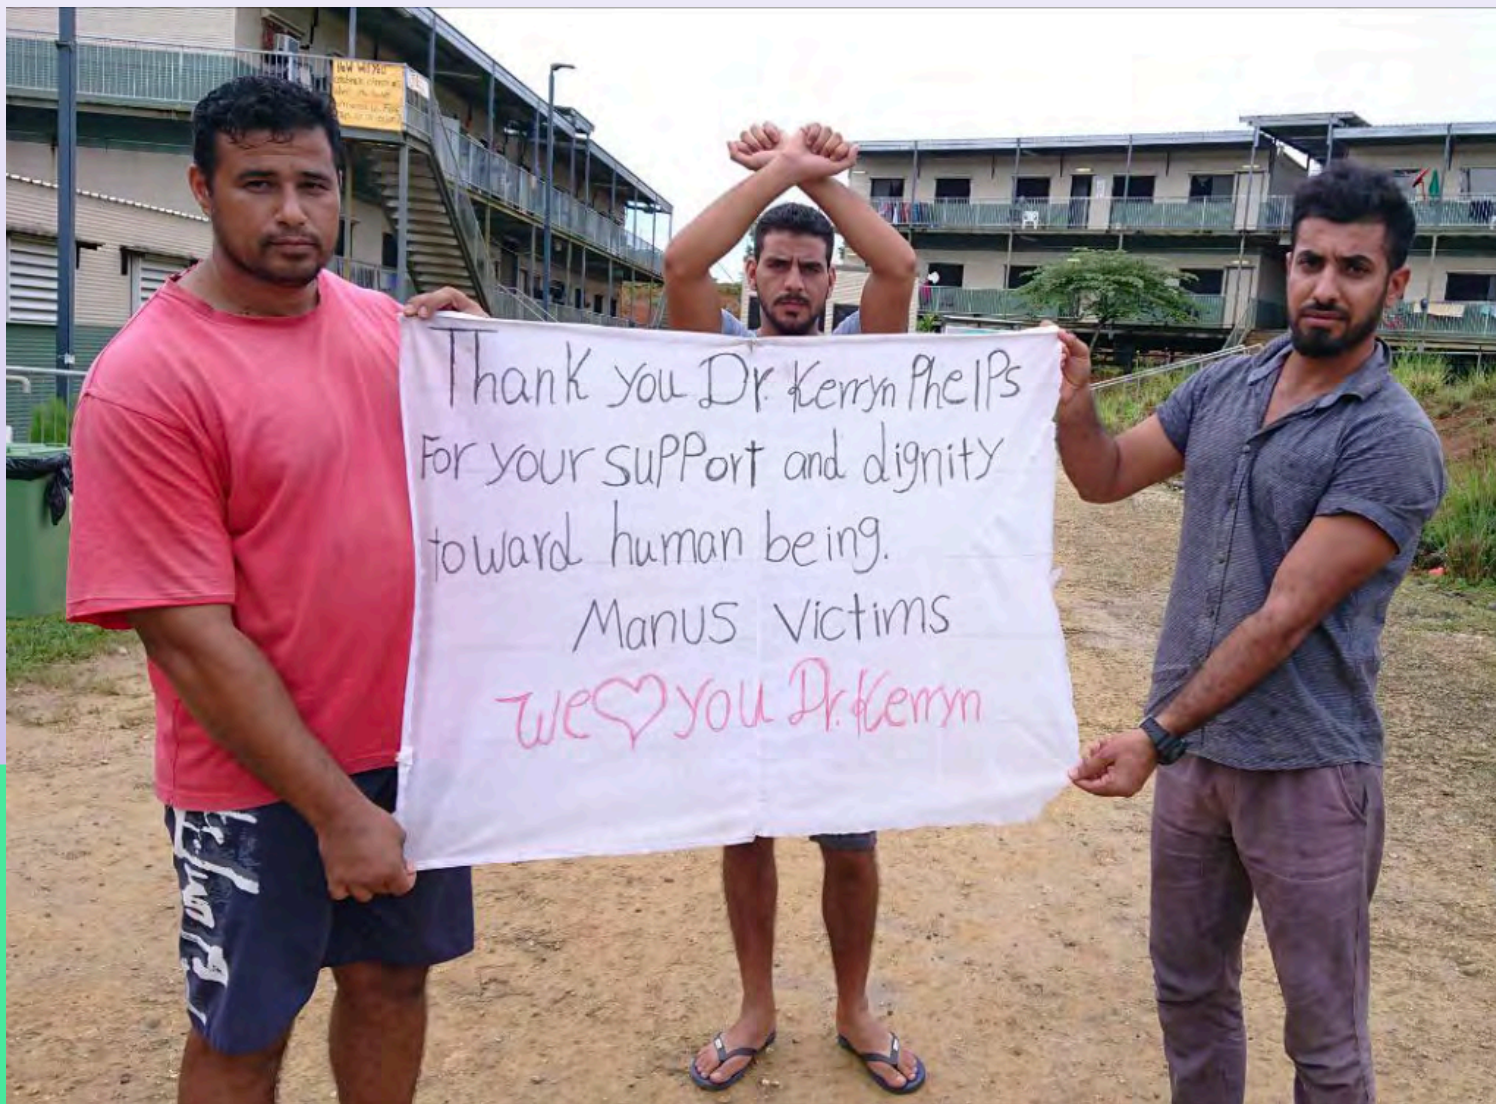 How will you
Thank you Dr. Kerryn Phelps
For your support and dignity
toward human being.
Manus victims
we♡you Dr. Kerryn